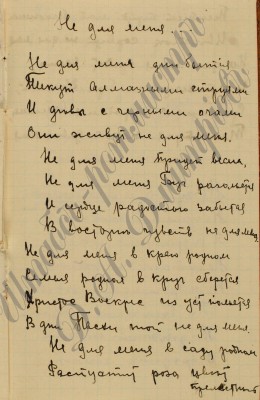 Не для меня....
Не для меня дни бьются
Текут Алмазными струями
И девы с черными очами
Они живут не для меня.
Не для меня придет весна,
Не для меня Буг разольется
И сердце радостно забьется
В восторге чувств не для меня
Не для меня в краю родном
Семья родная в круг сберется
Христос Воскрес из уст польется
В день Пасхи той не для меня.
Не для меня в саду родном
Распустит роза цвет
прелестный